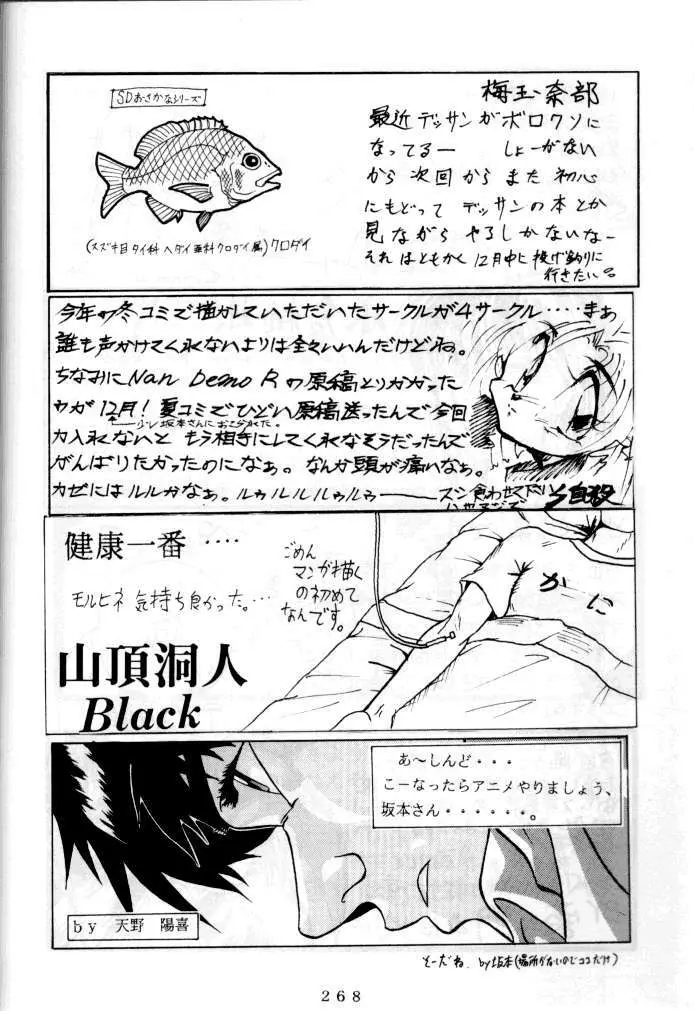 SDおさかなシリーズ
(スズキ目タイ科ヘダイ亜科クロダイ属)クロダイ
梅玉奈部
最近デッサンがボロクソに
なってるー しょーがない
から次回からまた初心
にもどってデッサンの本とか
見ながらやるしかないなー
それはともかく12月中に投げ釣りに
行きたい。
今年の冬コミで描かしていただいたサークルが4サークル‥‥まぁ
誰も声かけてくれないよりは全々いいんだけどね。
ちなみにNan Demo Rの原稿とりかかった
ウが12月!夏コミでひどい原稿送ったんで今回
少し坂本さんにおこられた。
力入れないともう相手にしてくれなそうだったんで
がんばりたかったのになぁ。なんか頭が痛いなぁ。
カゼにはルルかなぁ。ルゥルルルゥルゥー
健康一番‥‥
モルヒネ気持ち良かった。…
ごめん
マンガ描く
の初めて
なんです。
かに
山頂洞人
Black
あ〜しんど・・・
こーなったらアニメやりましょう、
坂本さん・・・・・・。
by 天野 陽喜
そーだね。by坂本(場所がないのでココだけ)
268